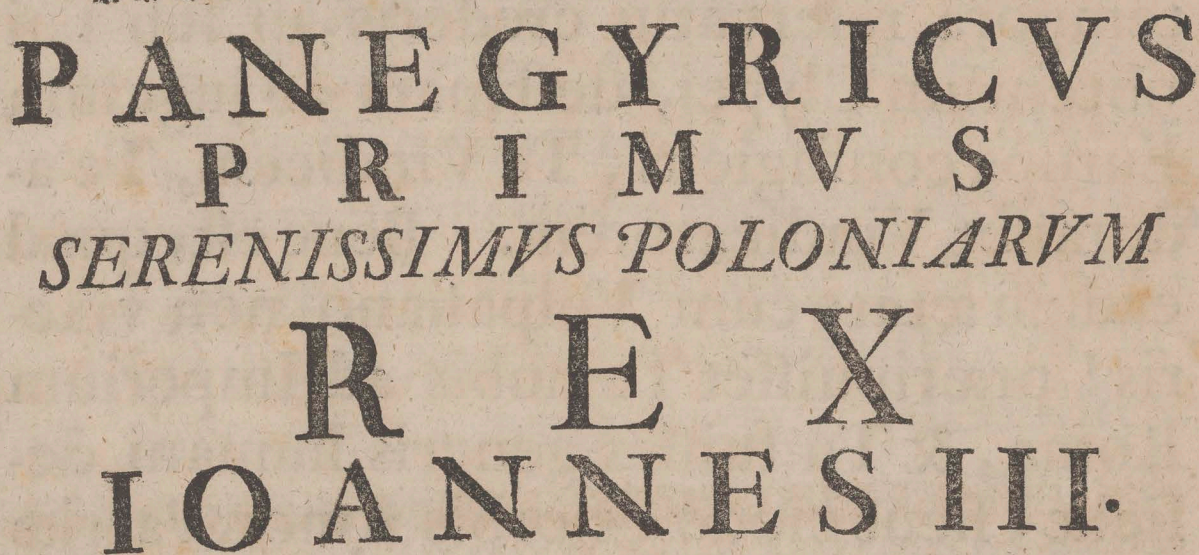 PANEGYRICVS
PRIMVS
SERENISSIMVS POLONIARVM
REX
IOANNES III.